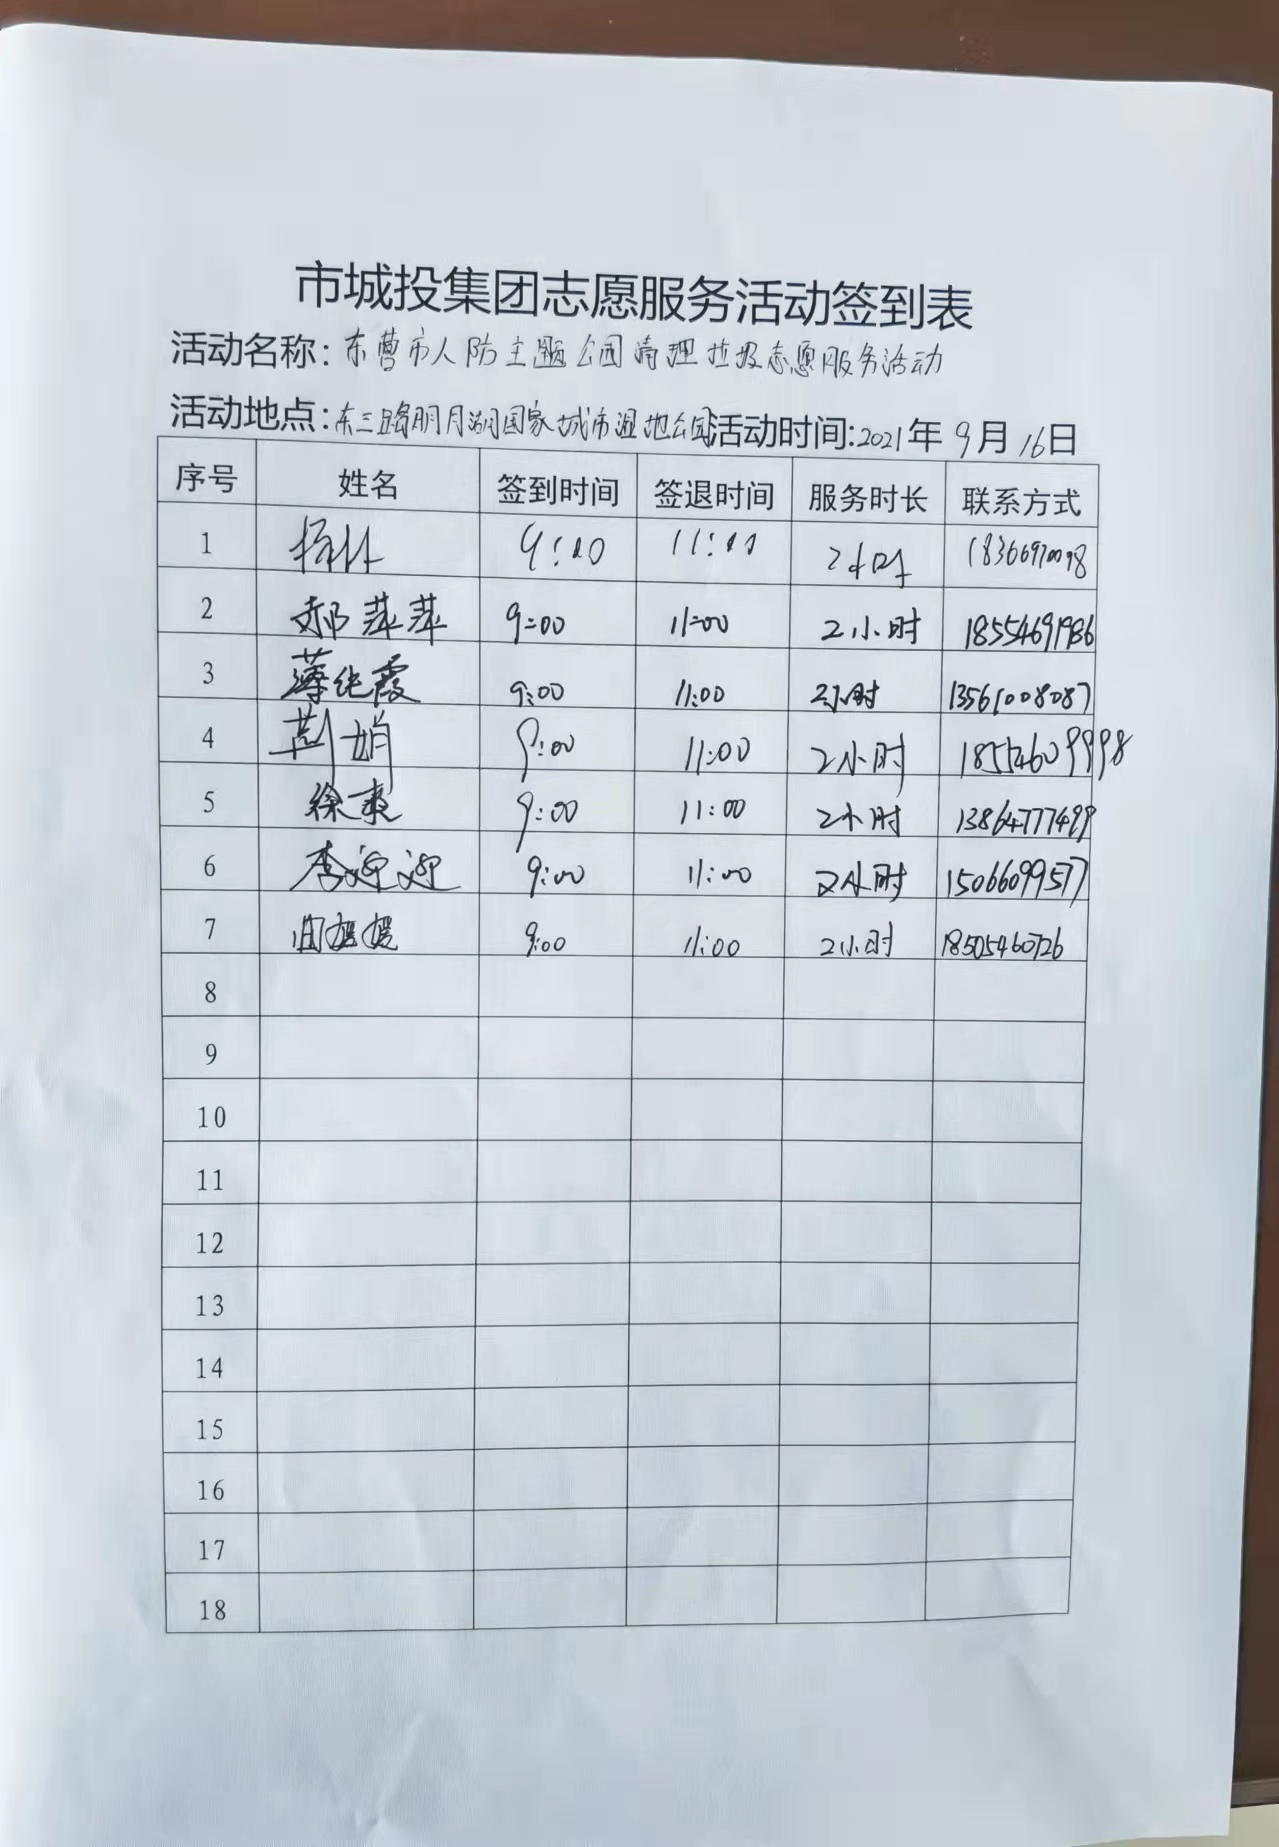 市城投集团志愿服务活动签到表
活动名称：东营市人防主题公园清理垃圾志愿服务活动
活动地点：东三路明月湖国家城市湿地公园 活动时间：2021年9月16日
序号 姓名 签到时间 签退时间 服务时长 联系方式
1 9:00 11:00 2小时
2 郝萍萍 9:00 11:00 2小时 18554691986
3 薄纯霞 9:00 11:00 2小时 13561008087
4 荆娟 9:00 11:00 2小时 18554609998
5 徐爽 9:00 11:00 2小时 13864777499
6 李迎迎 9:00 11:00 2小时 15066099577
7 9:00 11:00 2小时 18505460726
8
9
10
11
12
13
14
15
16
17
18